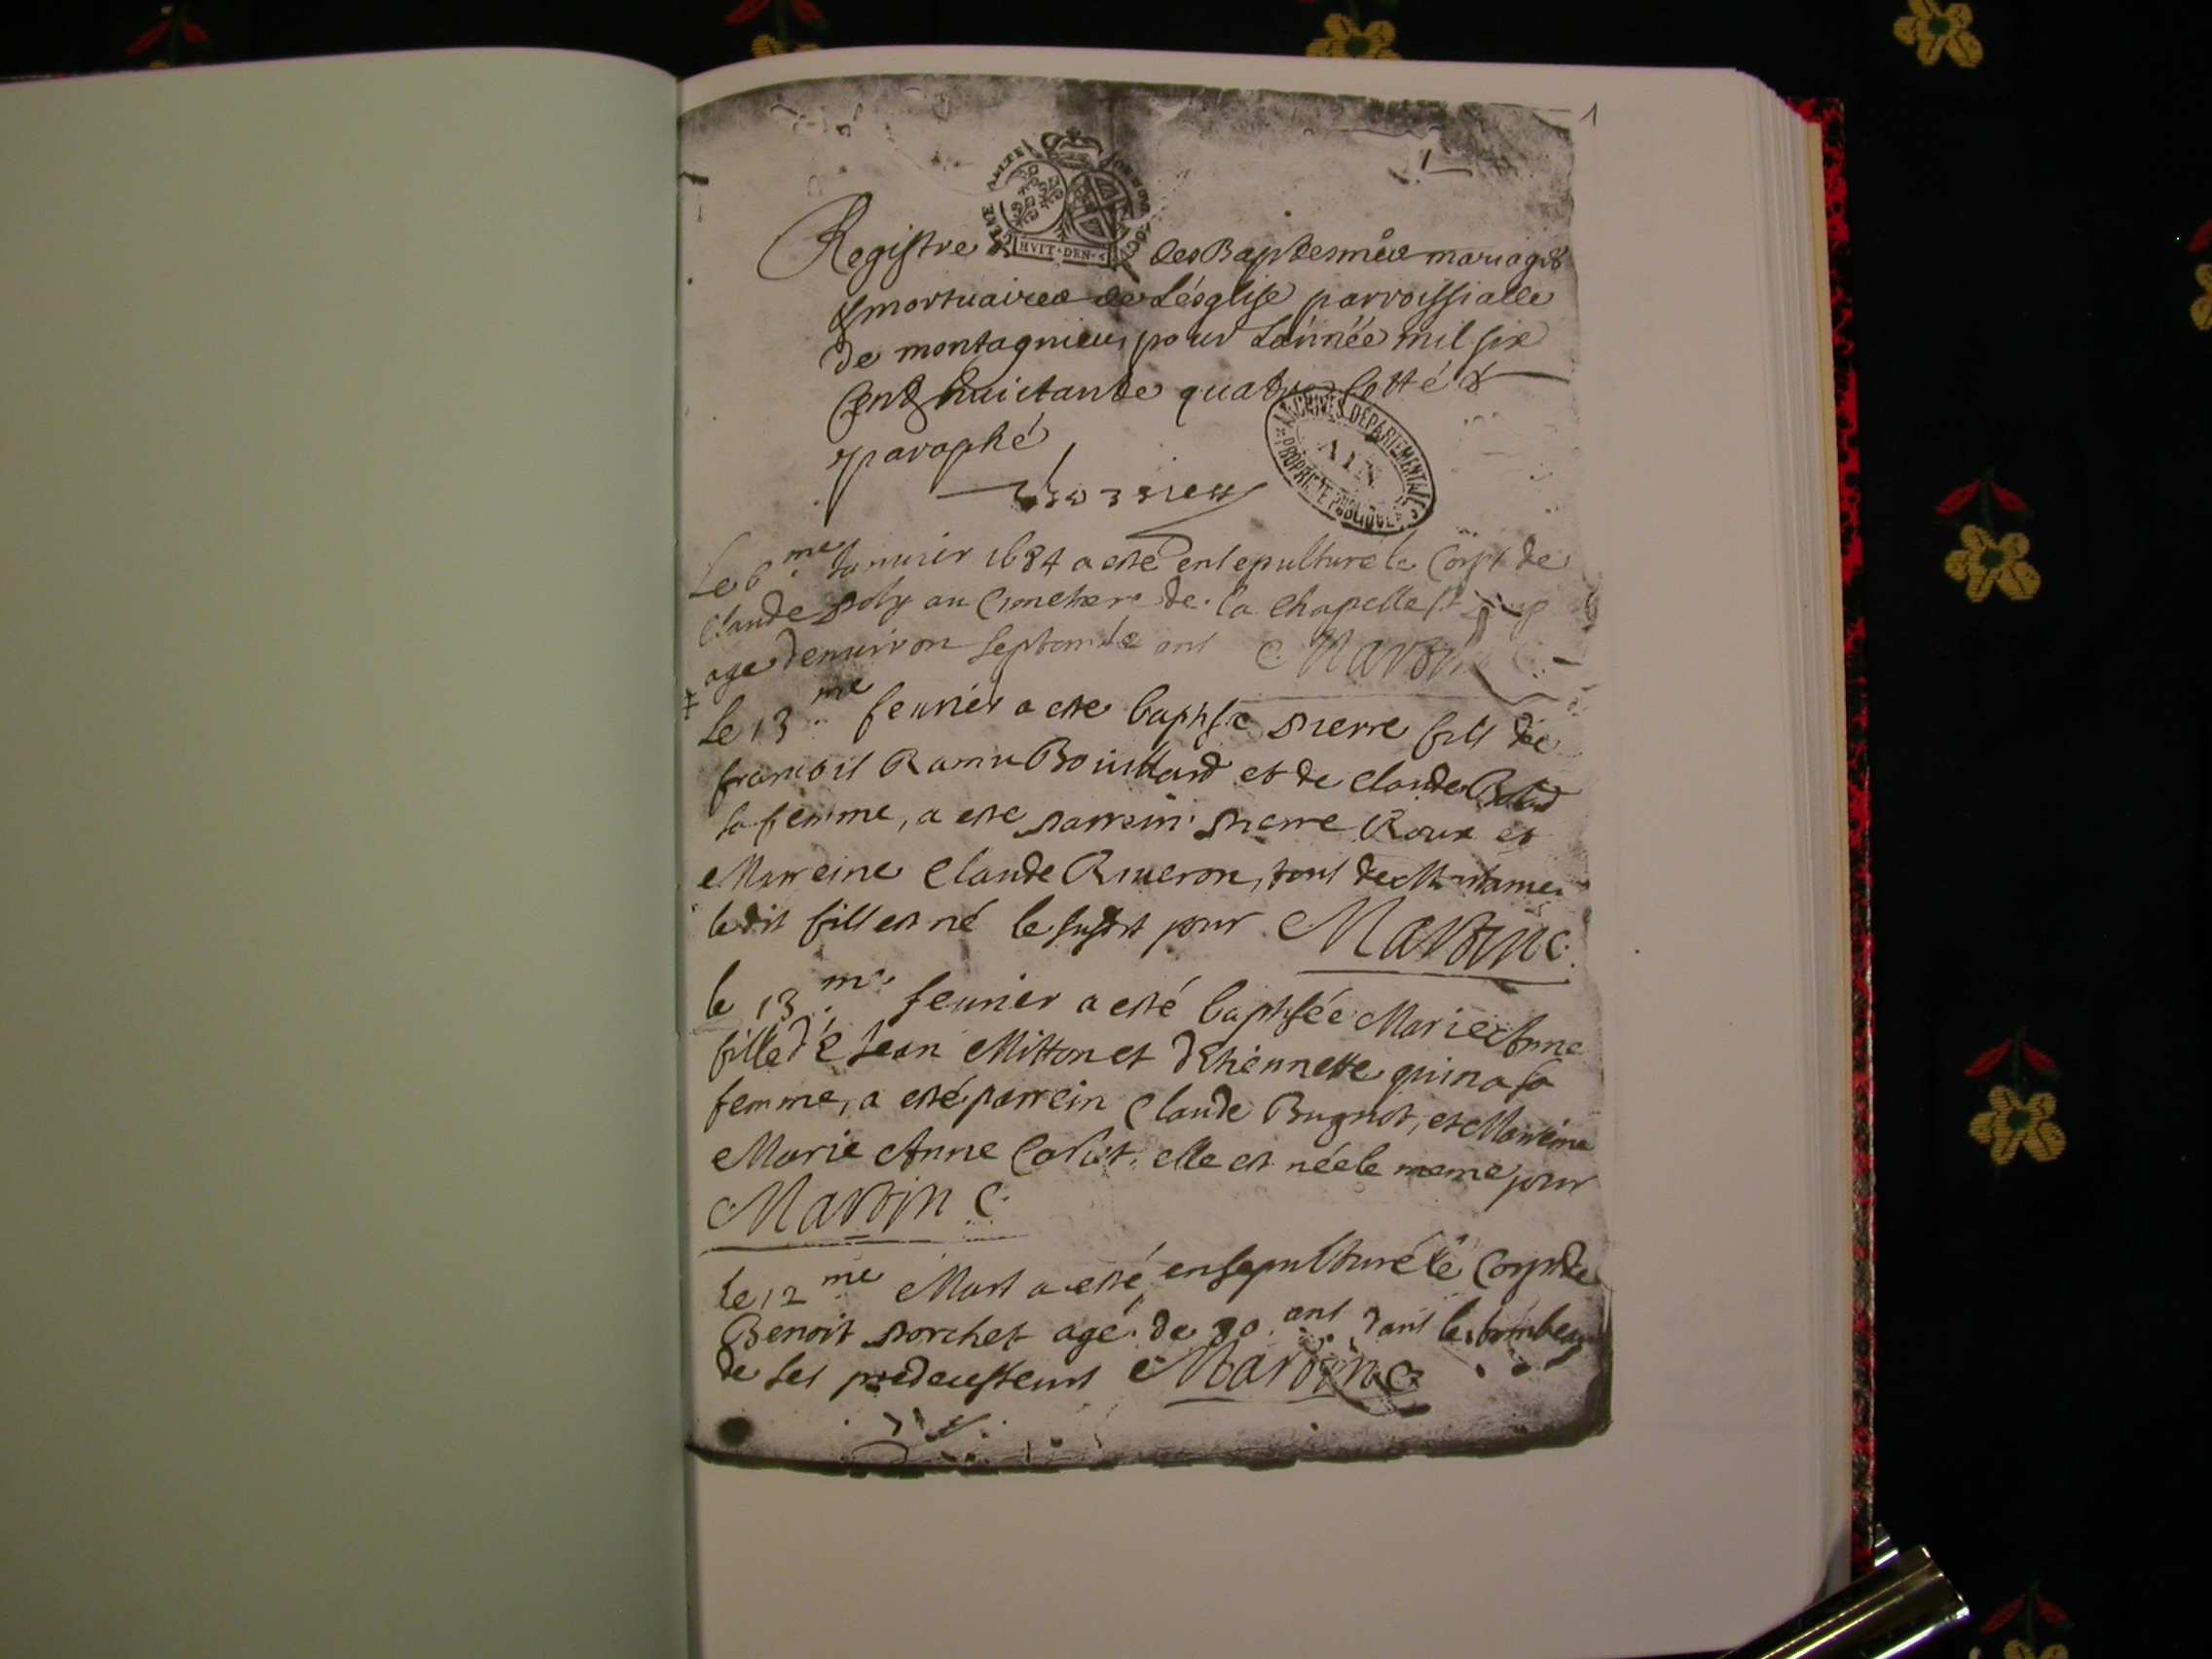 1
1
GENE ALITE
HVIT · DEN ·
Registre des Baptesmes mariages
& mortuaires de L'esglise parroissialle
de montagnieu, pour L'année mil six
Cent huictante quatre Cotté &
paraphé
ARCHIVES DEPARTEMENTALES
AIN
PROPRIETE PUBLIQUE
Le 6.me Januier 1684 a esté ensepulturé le Corps de
Claude poly au Cimetiere de la Chapelle St
age denuiron septante ans Martin C.
Le 13.me feurier a este baptise pierre fils de
francois Ramu Bouillard et de Claude
sa femme, a este parrein pierre Roux et
Marreine Claude Riueron, tous de
ledit fils est né le susdit jour Martin C.
le 13.me feurier a esté baptisée Marie Anne
fille d'e Jean Mitton et d'Ethiennette quina sa
femme, a esté parrein Claude Bugnot, et Marreine
Marie Anne elle est née le meme jour
Martin C.
Le 12.me Mars a esté ensepulturé le Corps de
Benoit porchet agé de 30 ans dans le tombeau
de ses predecesseurs Martin C.